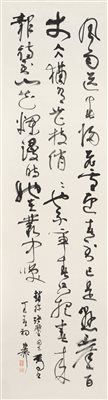 風雨送春歸飛雪迎春到已是懸崖百
丈冰猶有花枝俏俏也不爭春只把春來
報待到山花爛漫時她在叢中笑